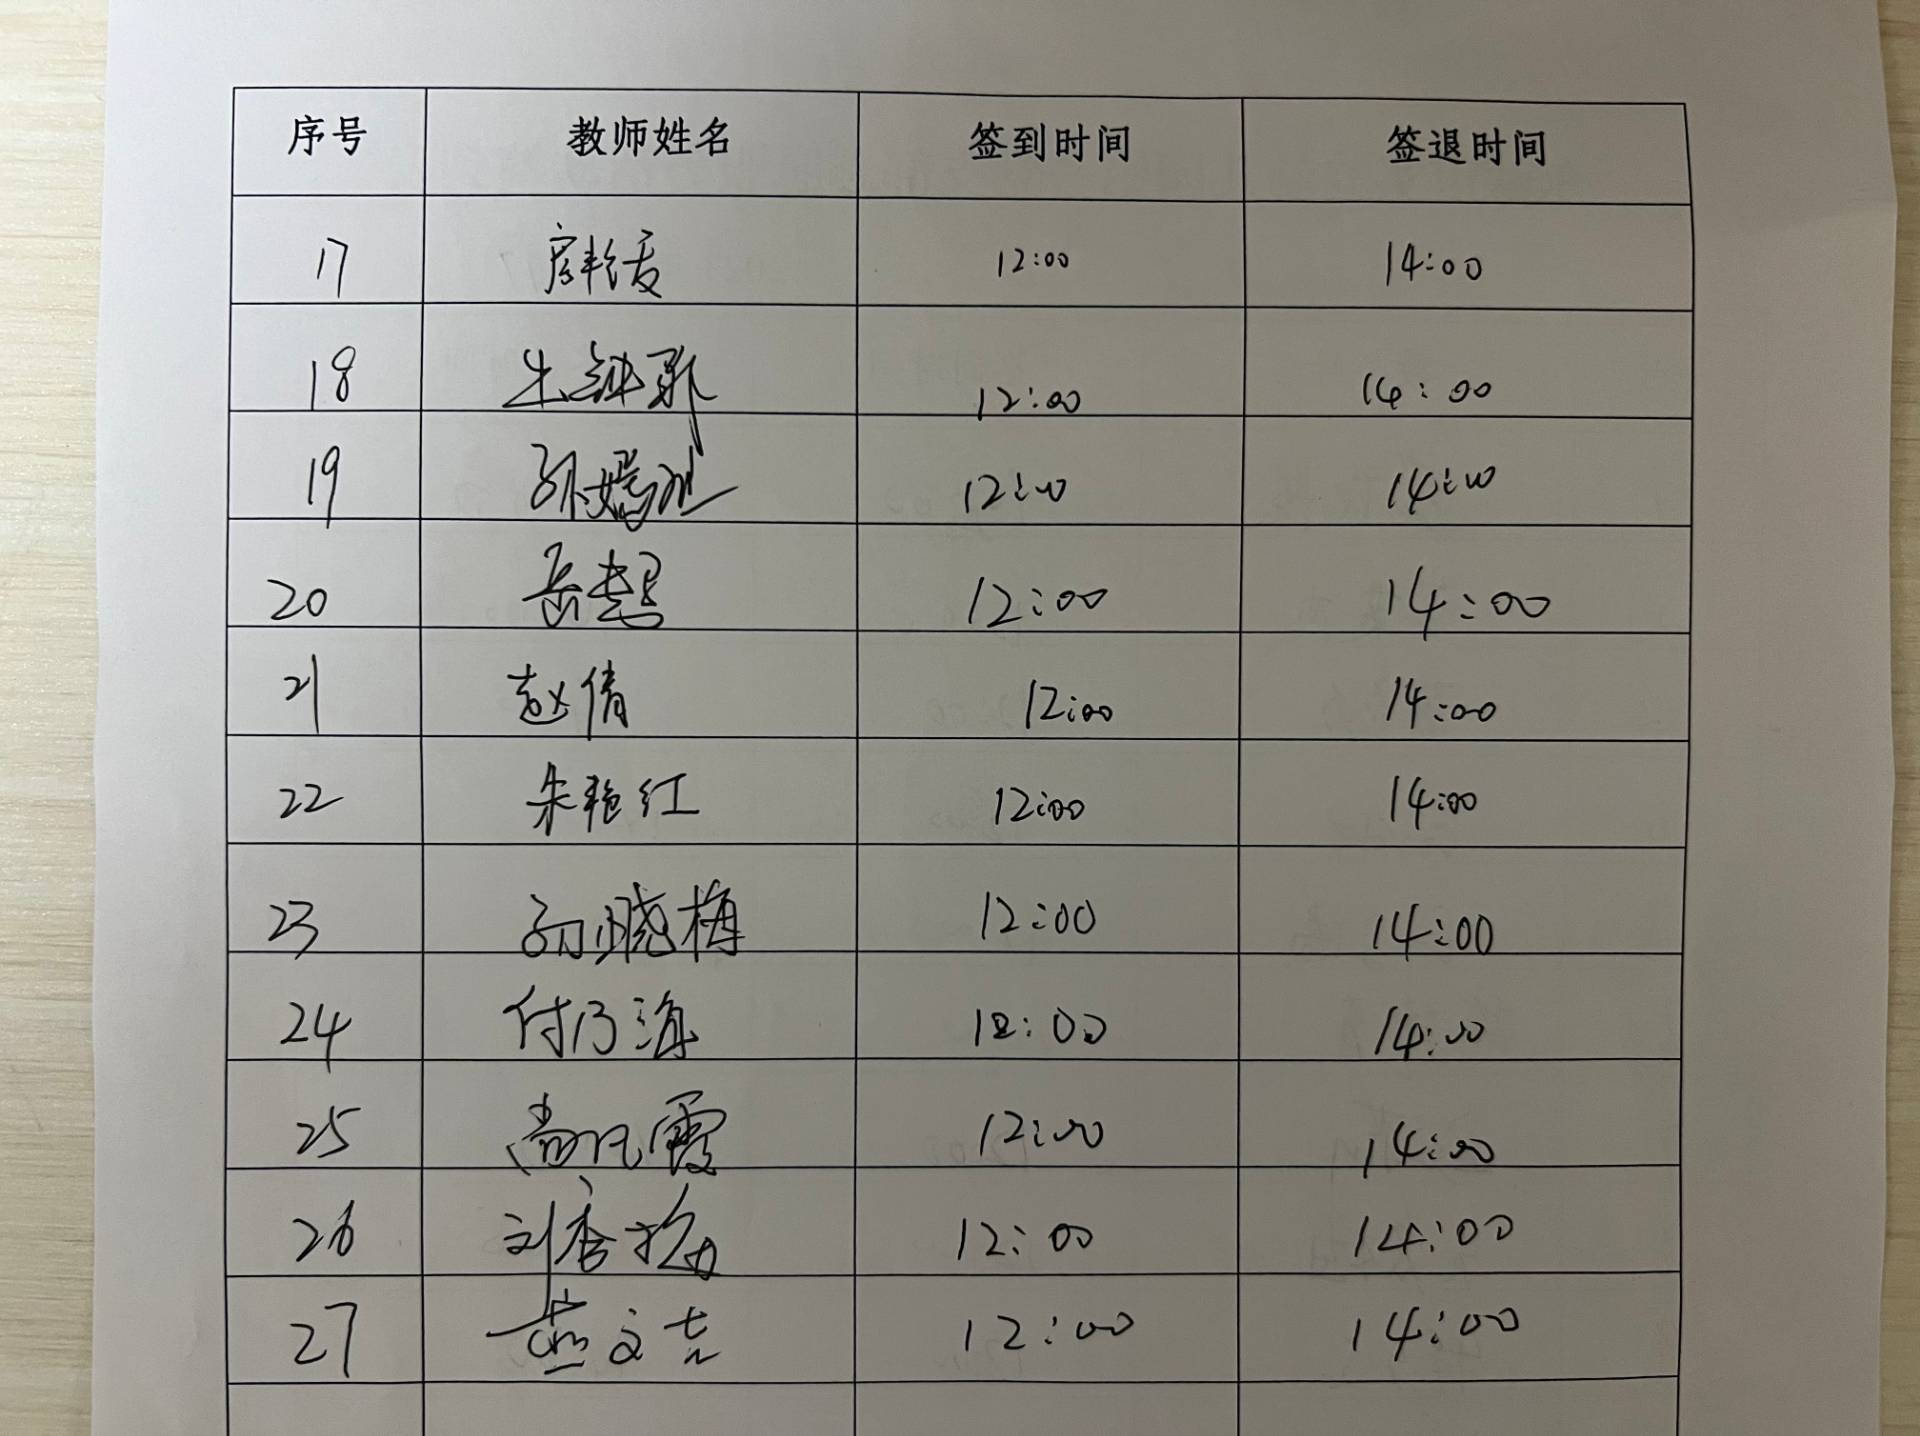 序号 教师姓名 签到时间 签退时间
17 12:00 14:00
18 12:00 14:00
19 孙嫣 12:00 14:00
20 岳想 12:00 14:00
21 赵倩 12:00 14:00
22 朱艳红 12:00 14:00
23 孙晓梅 12:00 14:00
24 付乃海 12:00 14:00
25 尚凡霞 12:00 14:00
26 刘香梅 12:00 14:00
27 12:00 14:00